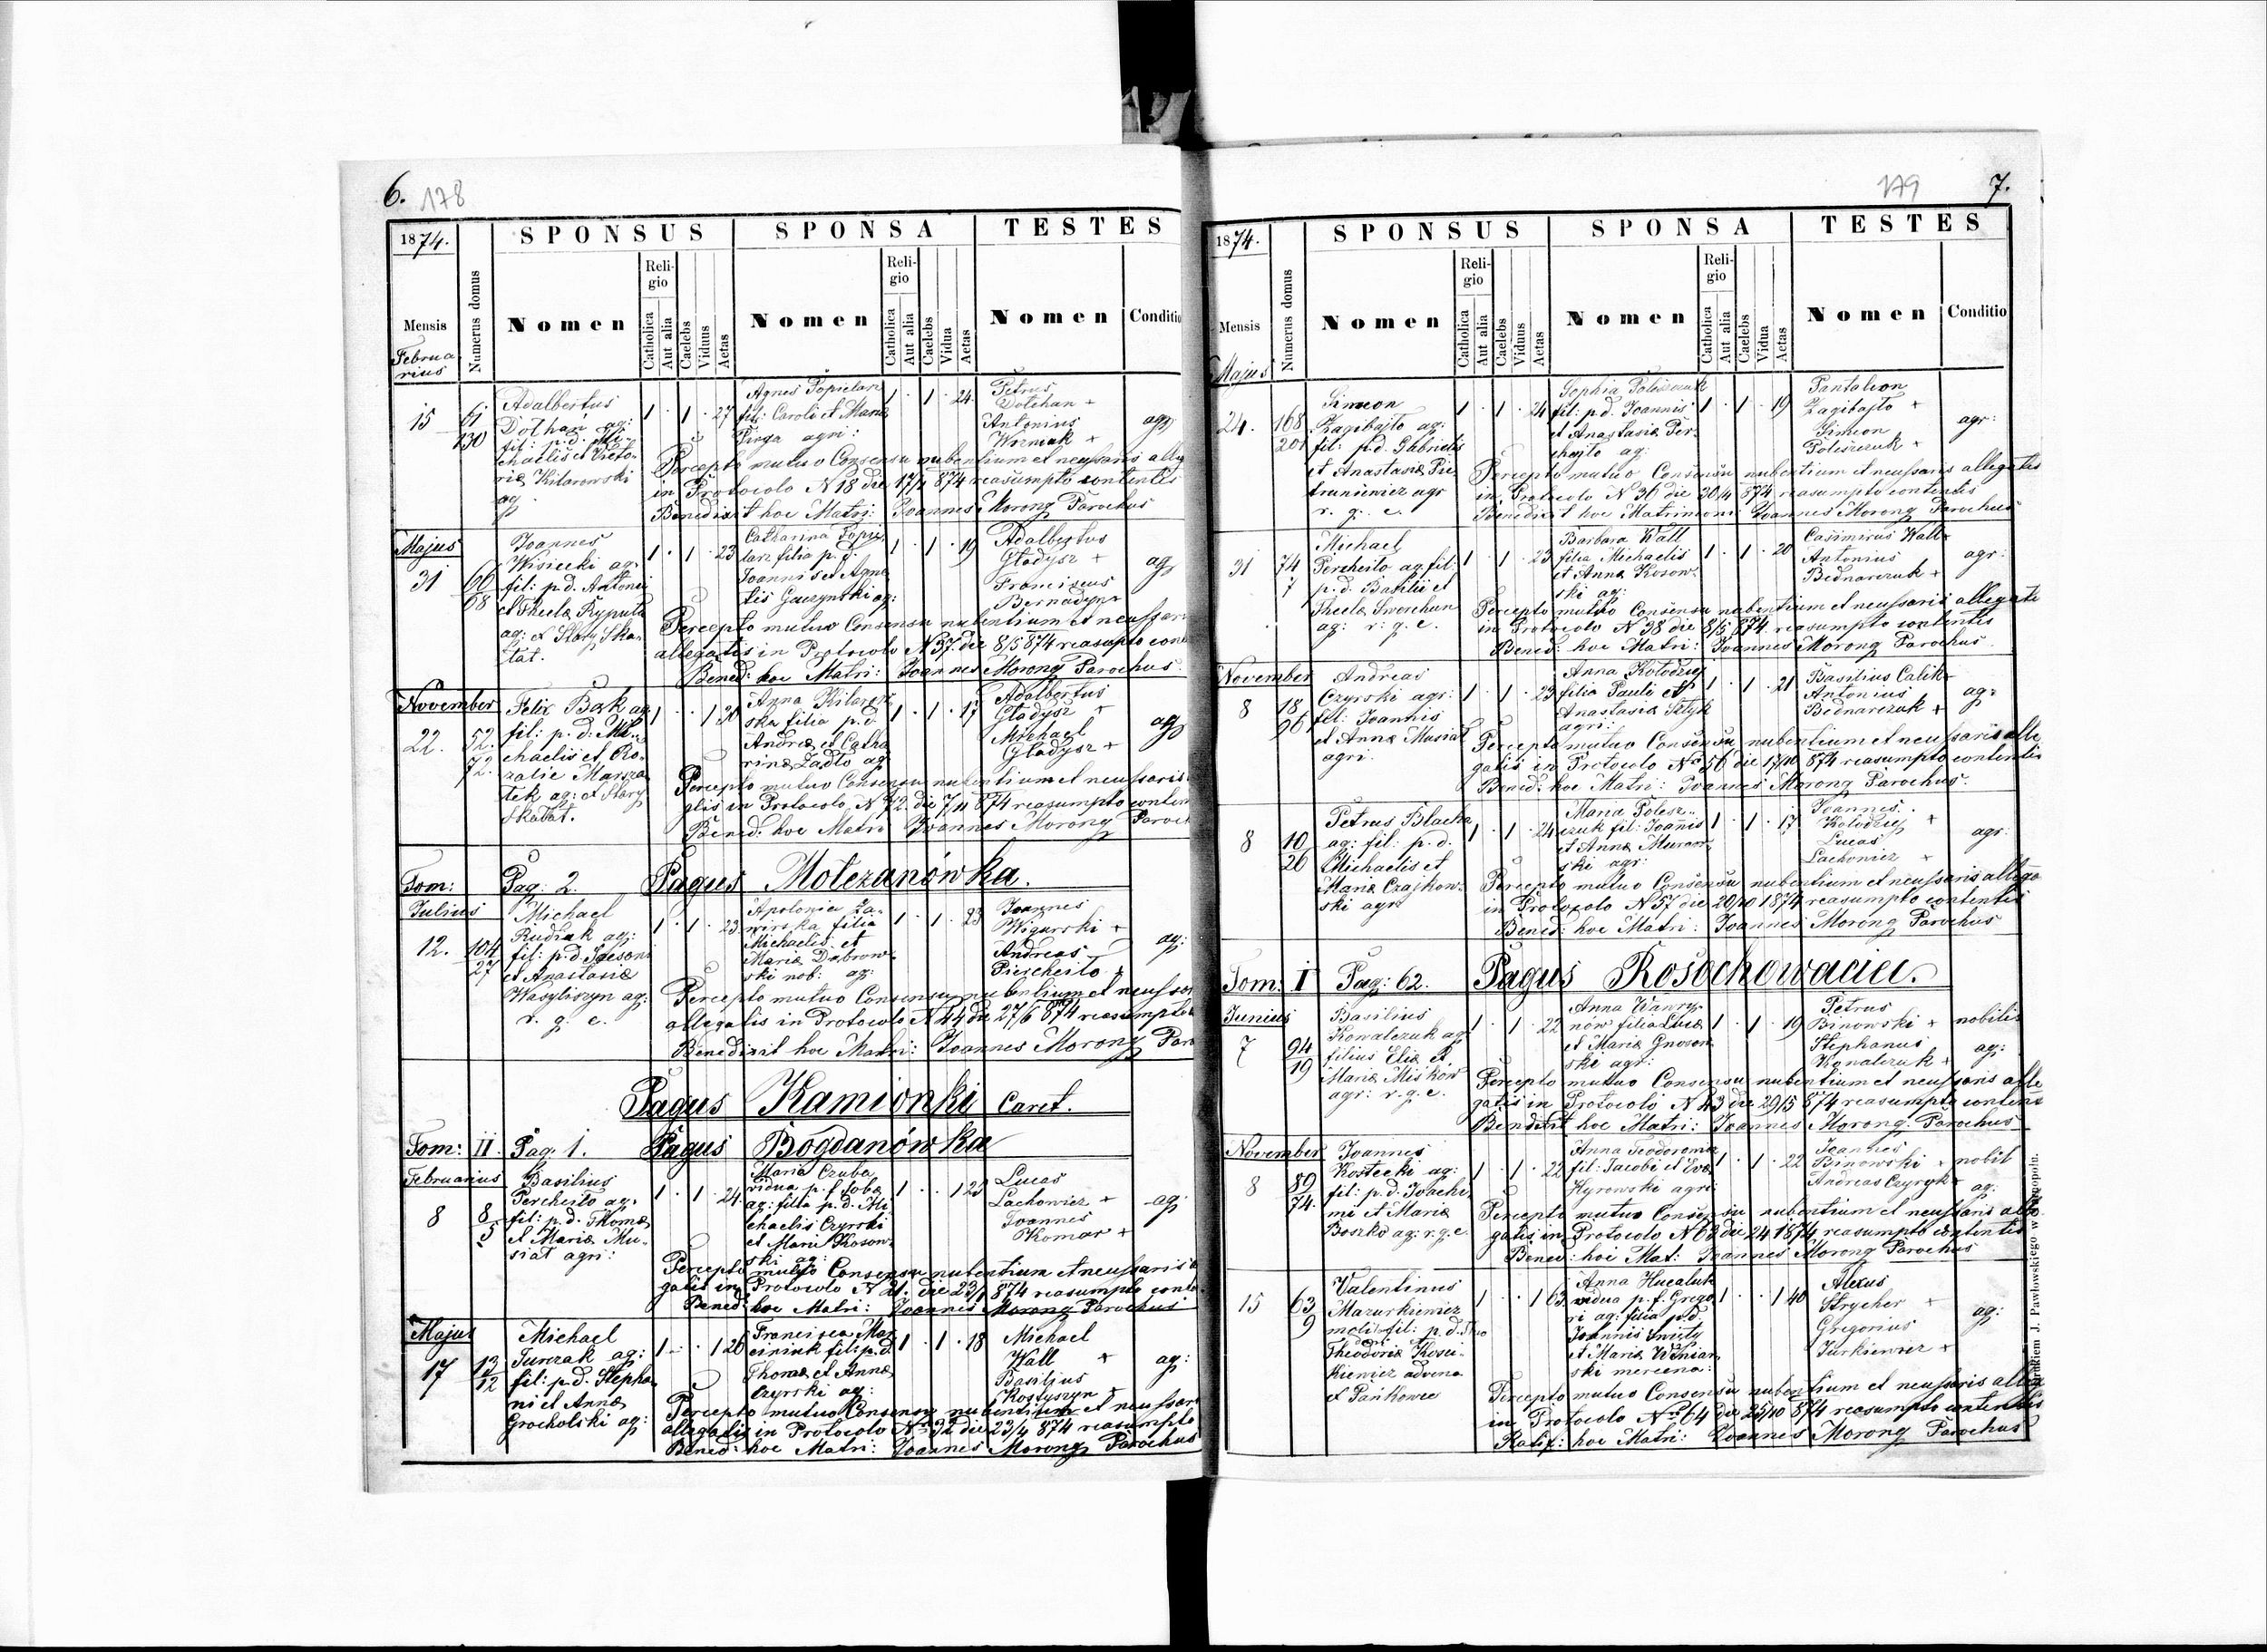 6. 178
1874.
SPONSUS
SPONSA
TESTES
Mensis
Numerus domus
Nomen
Religio
Catholica
Aut alia
Caelebs
Viduus
Aetas
Nomen
Religio
Catholica
Aut alia
Caelebs
Vidua
Aetas
Nomen
Conditio
Februa
rius
15
61
130
Adalbertus
Dothan ag:
fil: p. d. Mi-
chaelis et Victo-
riæ Kilarowski
ag
1 · 1 · 27
Agnes Popielarz
fil: Caroli et Mariæ
Pirga agri:
1 · 1 · 24
Petrus
Dolehan +
Antonius
Wozniak +
agr
Percepto mutuo Consensu nubentium et neussaris alleg
in Protocolo N 18 die 17/1 874 reasumpto contentis
Benedixit hoc Matri: Joannes Morong Parochus
Majus
31
66
68
Joannes
Wisiecki ag:
fil: p. d. Antonii
et Theclæ Ryputa
ag: et Stary Ska-
tat.
1 · 1 · 23
Catharina Popie
larz filia p. d.
Joannis et Agne
tis Gaczynski ag:
1 · 1 · 19
Adalbertus
Gladysz +
Franciscus
Bernadyn +
ag
Percepto mutuo Consensu nubentium et neussar
allegatis in Protocolo N 37. die 8/5 874 reasupto cont
Bened: hoc Matri: Joannes Morong Parochus
November
22.
52.
72.
Felix Bak ag
fil: p. d. Mi-
chaelis et Ro-
zalie Marsza
tek ag: et Stary
Skatat.
1 · · 1 30
Anna Kilarow
ska filia p. d
Andreæ et Catha
rinæ Żadło ag
1 · 1 · 17
Adalbertus
Gładysz +
Michael
Gładysz +
ag
Percepto mutuo Consensu nubentium et neussaris
gtis in Protocolo N 72. die 7/11 874 reasumpto conten
Bened: hoc Matri Joannes Morong Paroch
Tom: Pag: 2. Pagus Molczanówka.
Julius
12.
104
27
Michael
Rudzak ag:
fil: p. d. Jasoni
et Anastasiæ
Wasyliszyn ag:
r. g. c.
1 · 1 · 23
Apolonia Za-
wirska filia
Michaelis et
Mariæ Dabrow-
ski nob: ag:
1 · 1 · 23
Joannes
Wigurski +
Andreas
Piercheito +
ag:
Percepto mutuo Consensu nubentium et neussar
allegatis in Protocolo N 44 die 27/6 874 reasumpto
Benedixit hoc Matri: Joannes Morong Paro
Pagus Kamionki Caret.
Tom: II. Pag: 1. Pagus Bogdanówka
Februarius
8
8
5
Basilius
Percheito ag:
fil: p. d. Thomæ
et Mariæ Mu-
siat agri:
1 · 1 · 24
Maria Czuba
vidua p. f. Jobæ
ag: filia p. d. Mi
chaelis Czyrski
et Mariæ Kosow-
ski ag:
1 · · 1 23
Lucas
Lachowicz +
Joannes
Komar +
ag:
Percepto mutuo Consensu nubentium et neussaris
gatis in Protocolo N 21. die 23/1 874 reasumpto conte
Bened: hoc Matri: Joannes Morong Parochus
Majus
17
13
12
Michael
Turczak ag:
fil: p. d. Stepha
ni et Annæ
Grocholski ag:
1 · · 1 26
Francisca Mar
ciniuk fil: p. d.
Thomæ et Annæ
Czyrski ag:
1 · 1 · 18
Michael
Wall +
Basilius
Kostyszyn +
ag:
Percepto mutuo Consensu nubentium et neussar
allegatis in Protocolo Nro 32 die 23/4 874 reasumpto
Bened: hoc Matri: Joannes Morong Parochus
179 7.
1874.
SPONSUS
SPONSA
TESTES
Mensis
Numerus domus
Nomen
Religio
Catholica
Aut alia
Caelebs
Viduus
Aetas
Nomen
Religio
Catholica
Aut alia
Caelebs
Vidua
Aetas
Nomen
Conditio
Majus
24.
168
201
Simeon
Zagibajto ag:
fil: p. d. Gabrielis
et Anastasiæ Pie
truniewicz agr
r. g. c.
1 · 1 · 24
Sophia Poleszczuk
fil: p. d. Joannis
et Anastasiæ Per-
chajto ag:
1 · 1 · 19
Pantaleon
Zagibajto +
Simeon
Poleszczuk +
agr:
Percepto mutuo Consensu nubentium et neussaris allegatis
in Protocolo N 36 die 30/4 874 reasumpto contentis
Benedixit hoc Matrimoni: Joannes Morong Parochus
31
74
7
Michael
Percheito ag. fil:
p. d. Basilii et
Theclæ Swerchun
ag: r: g. c.
1 · 1 · 23
Barbara Wall
filia Michaelis
et Annæ Kosow-
ski ag:
1 · 1 · 20
Casimirus Wall +
Antonius
Bednarczuk +
agr:
Percepto mutuo Consensu nubentium et neussaris allegati
in Protocolo N 38 die 8/5 874 reasumpto contentis
Bened: hoc Matri: Joannes Morong Parochus
November
8
18
96
Andreas
Czyrski agr:
fil: Joannis
et Annæ Musiat
agri:
1 · 1 · 23
Anna Kołodziej
filia Pauli et
Anastasiæ Sztyk
agri:
1 · 1 · 21
Basilius Calik +
Antonius
Bednarczuk +
agr
Percepto mutuo Consensu nubentium et neussaris alle
gatis in Protocolo No 56 die 17/10 874 reasumpto contentis
Bened: hoc Matri: Joannes Morong Parochus.
8
10
26
Petrus Blacha
ag: fil: p. d.
Michaelis et
Mariæ Czajkow-
ski agr
1 · 1 · 24
Maria Polesz-
czuk fil: Joannis
et Annæ Muraw
ski agr:
1 · 1 · 17
Joannes
Kołodziej +
Lucas
Lachowicz +
agr:
Percepto mutuo Consensu nubentium et neussaris allega
in Protocolo N 57 die 20/10 1874 reasumpto contentis
Bened: hoc Matri: Joannes Morong Parochus
Tom: I Pag: 62. Pagus Rosochowaciec.
Junius
7
94
19
Basilius
Kowalczuk ag:
filius Eliæ et
Mariæ Misków
agr: r. g. c.
1 · 1 · 22
Anna Wawry-
now filia Lucæ
et Mariæ Gnosow
ski agr:
1 · 1 · 19
Petrus
Binowski +
Stephanus
Kowalczuk +
nobilis
ag:
Percepto mutuo Consensu nubentium et neussaris alle
gatis in Protocolo N 43 die 29/5 874 reasumpto contentis
Bendixit hoc Matri: Joannes Morong Parochus
November
8
89
74.
Joannes
Kostecki ag:
fil: p. d. Joachi
mi et Mariæ
Boszko ag: r. g. c.
1 · 1 · 22
Anna Teodorowicz
fil: Jacobi et Evæ
Hyrowski agri:
1 · 1 · 22
Joannes
Binowski +
Andreas Czyryk +
nobil
ag:
Percepto mutuo Consensu nubentium et neussaris alle
gatis in Protocolo N 63 die 24 1874 reasumpto contentis
Bened: hoc Mat: Joannes Morong Parochus
15
63
9
Valentinus
Mazurkiewicz
1 · · 1 63
Anna Hucaluk
vidua p. f. Grego
ri ag: filia p. d.
Joannis Smity
et Mariæ Wisniar
ski mercena:
1 · · 1 40
Alexus
Strycher +
Gregorius
Jurkiewicz +
ag:
Theodoriæ Kosci-
kiewicz advena
et Pańkowce
Percepto mutuo Consensu nubentium et neussaris allega
in Protocolo Nro 64 die 25/10 874 reasumpto contentis
Ratif: hoc Matri: Joannes Morong Parochus
Drukiem J. Pawłowskiego w Tarnopolu.